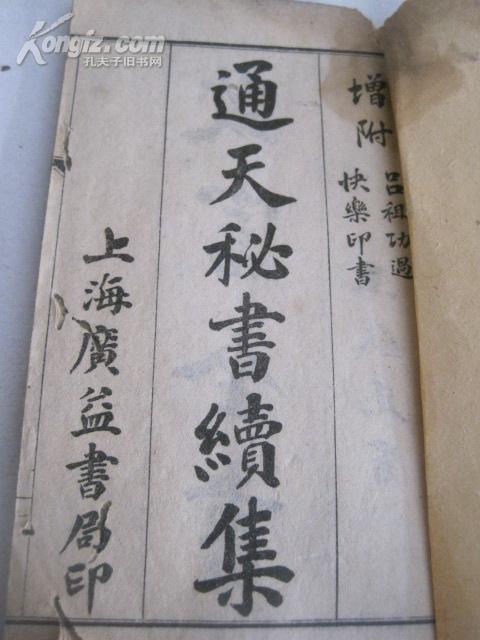 Kongfz.com
孔夫子旧书网
增附
呂祖功過
快樂印書
通天秘書續集
上海廣益書局印